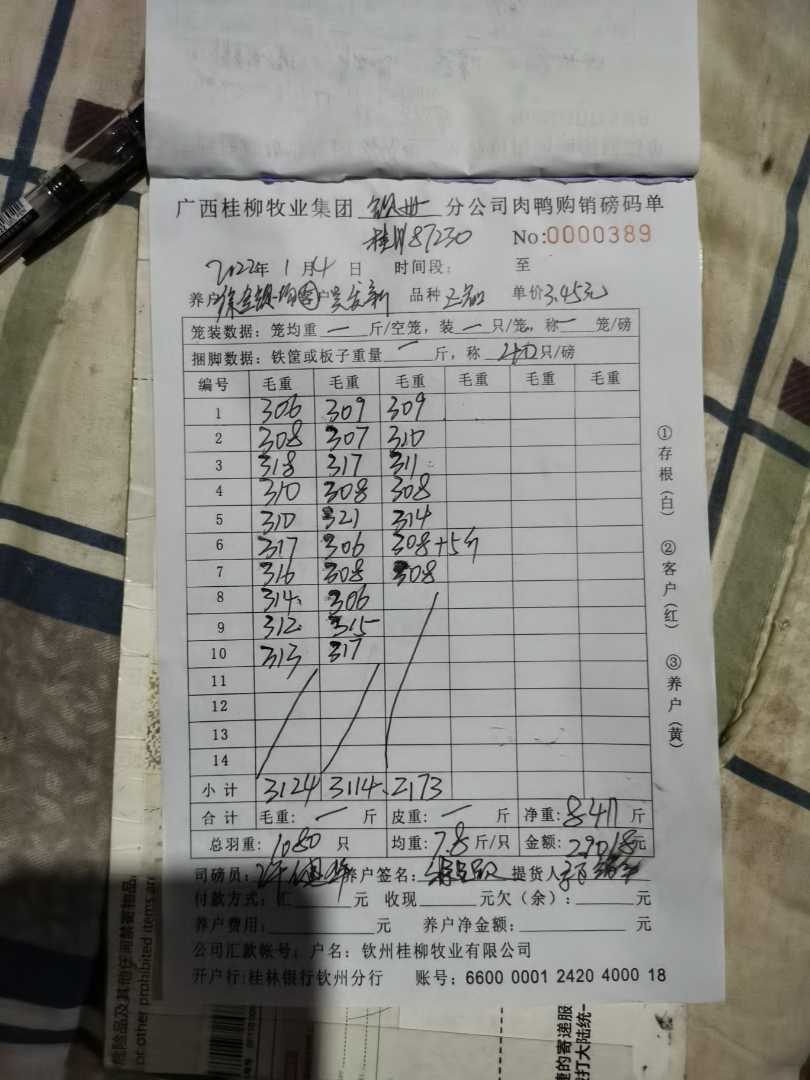 广西桂柳牧业集团 钦州 分公司肉鸭购销磅码单
桂N87230 No:0000389
2022年 1月4日 时间段: 至
养户 客户 品种 单价3.45元
笼装数据: 笼均重 一 斤/空笼, 装 一 只/笼, 称 一 笼/磅
捆脚数据: 铁筐或板子重量 一 斤, 称 40只/磅
编号 毛重 毛重 毛重 毛重 毛重 毛重
1 306 309 309
2 308 307 310
3 318 317 311
4 310 308 308
5 310 321 314
6 317 306 308+5斤
7 316 308 308
8 314 306
9 312 315
10 313 317
11
12
13
14
小计 3124 3114 2173
合计 毛重: 一 斤 皮重: 一 斤 净重: 8411 斤
总羽重: 1080 只 均重: 7.8 斤/只 金额: 29018元
司磅员: 养户签名: 提货人:
付款方式: 汇 元 收现 元欠(余): 元
养户费用: 元 养户净金额: 元
公司汇款帐号: 户名: 钦州桂柳牧业有限公司
开户行:桂林银行钦州分行 账号: 6600 0001 2420 4000 18
①存根(白) ②客户(红) ③养户(黄)
危险品及其他任何禁寄物品
or other prohibited items are
捷的寄递服
打大陆统一